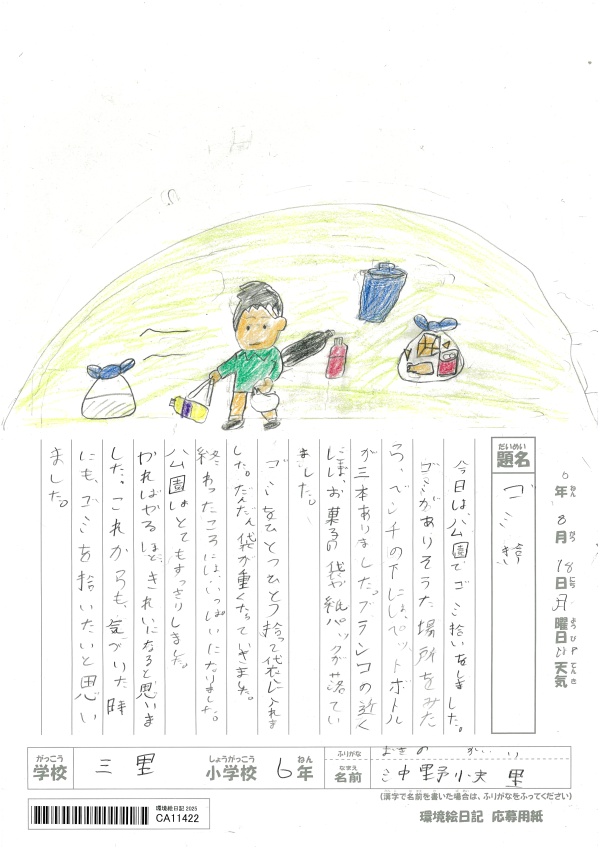 だいめい
題名
ゴミ拾
年 8月 18日 月曜日 天気
ねん がつ にち ようび てんき
今日は、公園でゴミ拾いをしました。
ゴミがありそうな場所をみた
ら、ベンチの下には、ペットボトル
が三本ありました。ブランコの近く
には、お菓子の袋や紙パックが落てい
ました。
ゴミをひとつひとつ拾って袋に入れま
した。だんだん袋が重くなっていきました。
終わったころには、いっぱいになりました。
公園はとてもすっきりしました。
かればやるほど、きれいになると思いま
した。これからも、気づいた時
にも、ゴミを拾いたいと思い
ました。
がっこう
学校
三里
しょうがっこう
小学校
6年
ねん
ふりがな
なまえ
名前
おきの
沖野
里
(漢字で名前を書いた場合は、ふりがなをふってください)
環境絵日記 2025
CA11422
環境絵日記 応募用紙